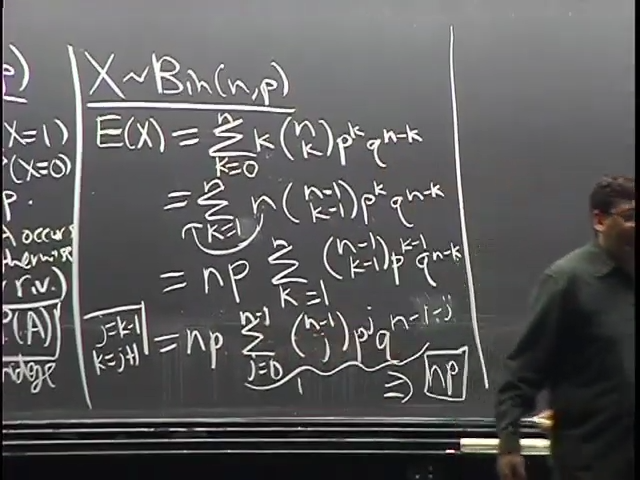 p)
X=1)
P(X=0)
p.
A occurs
otherwise
r.v.)
P(A)
bridge
X~Bin(n,p)
E(X) = Σ_{k=0}^{n} k (n k) p^k q^{n-k}
= Σ_{k=1}^{n} n (n-1 k-1) p^k q^{n-k}
= np Σ_{k=1}^{n} (n-1 k-1) p^{k-1} q^{n-k}
j=k-1
k=j+1
= np Σ_{j=0}^{n-1} (n-1 j) p^j q^{n-1-j}
1 ⇒ np